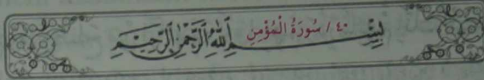 ٤٠ / سُورَةُ الْمُؤْمِنِ
بِسْمِ اللَّهِ الرَّحْمَٰنِ الرَّحِيمِ